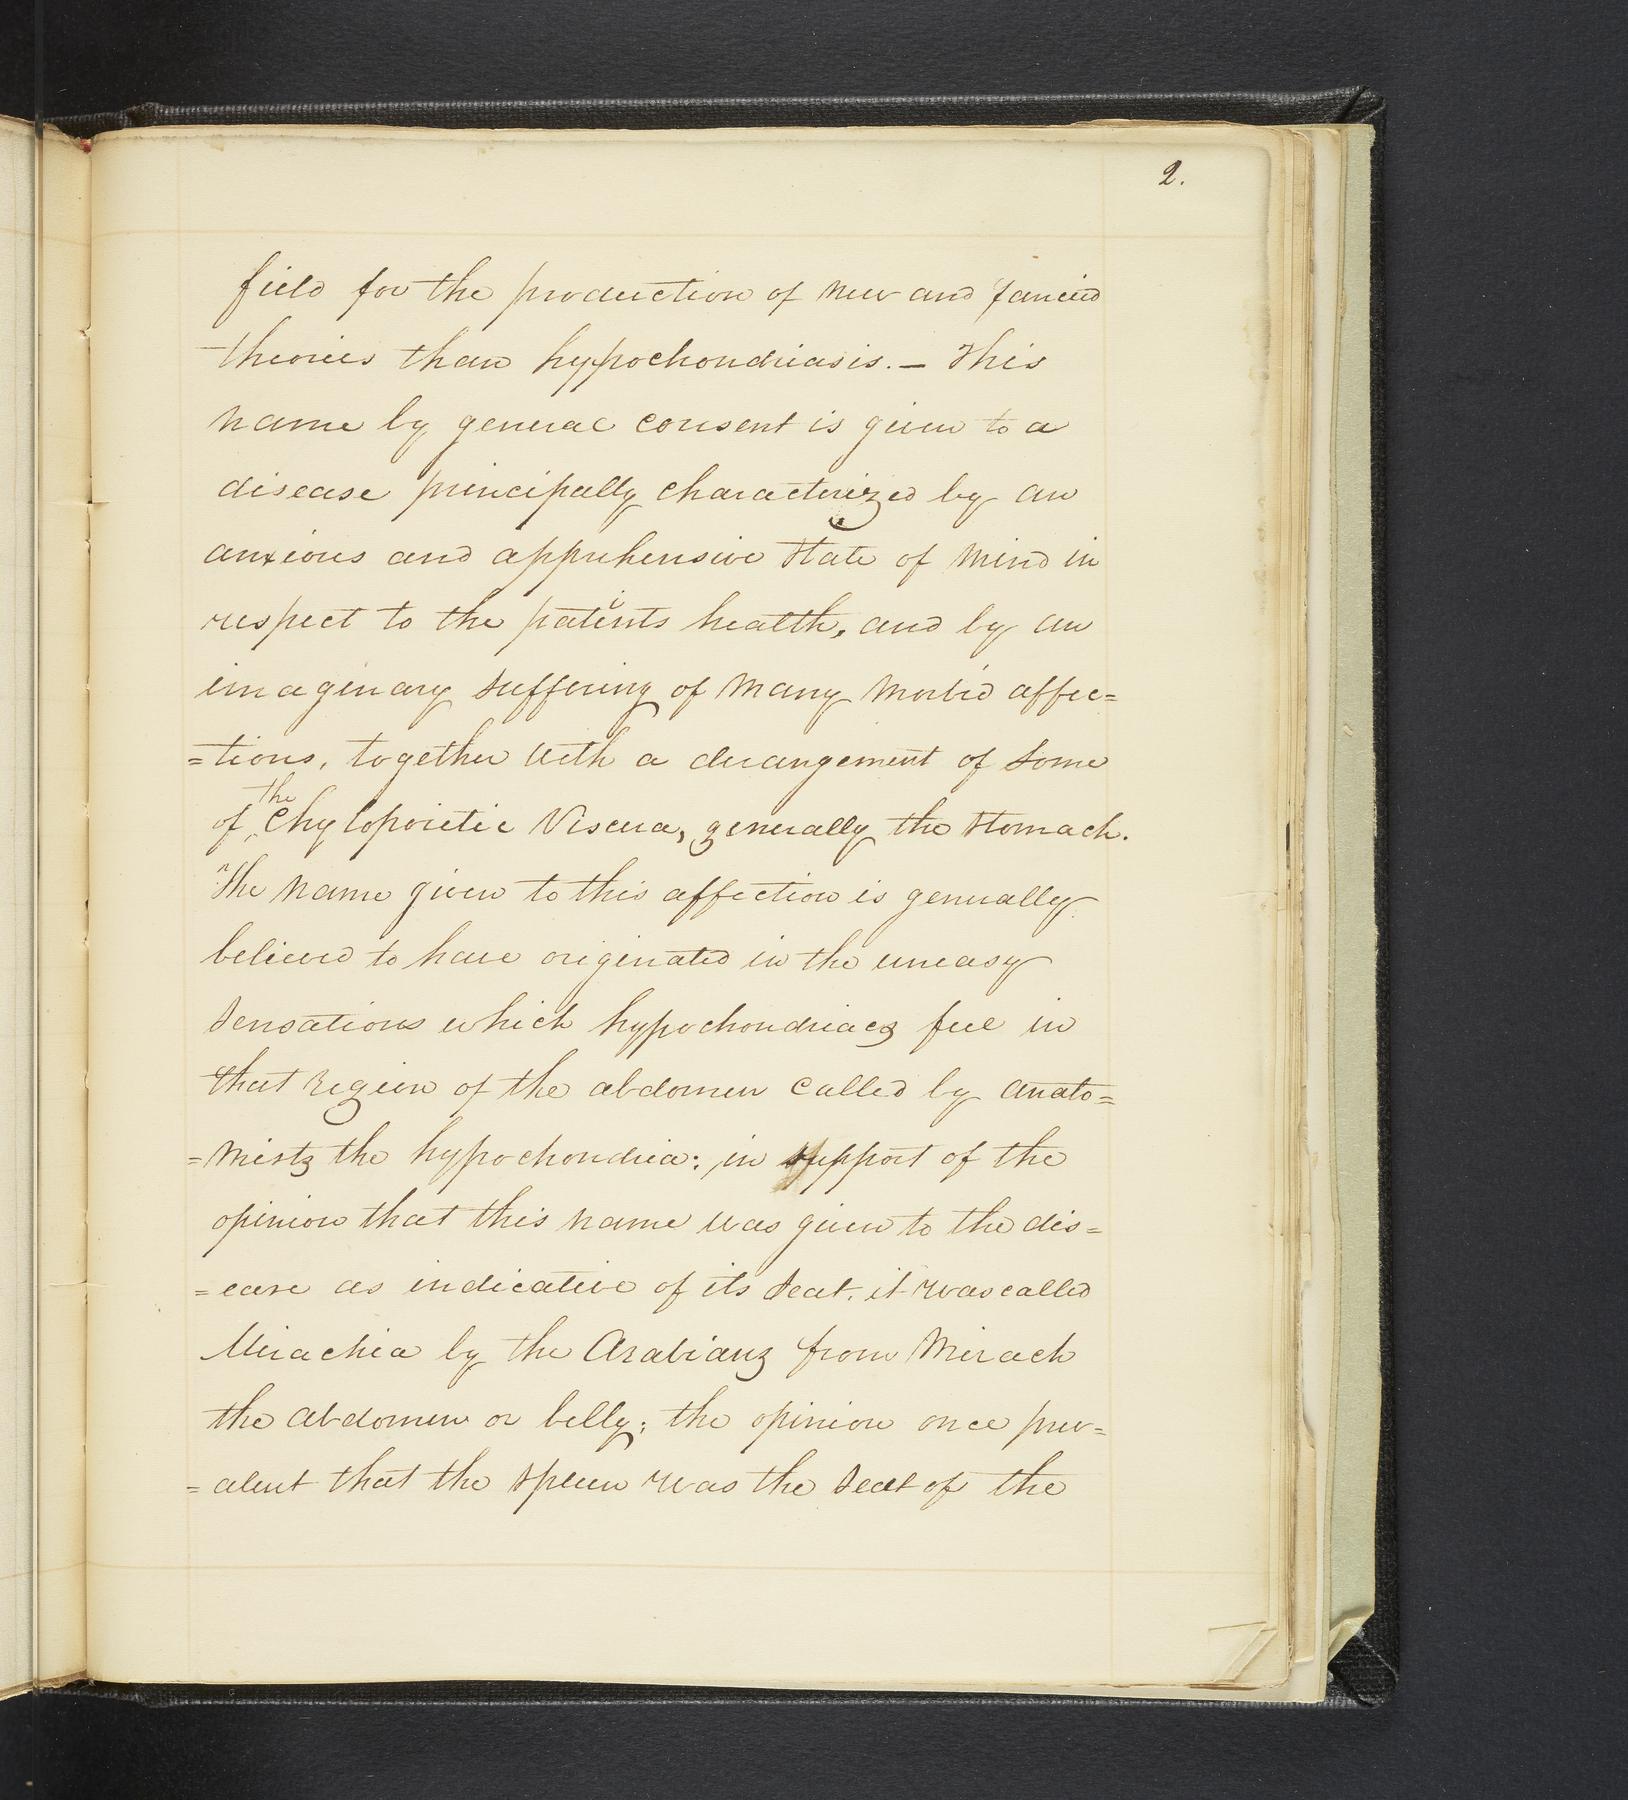 2.
field for the production of new and fancied
theories than hypochondriasis. — This
name by general consent is given to a
disease principally characterized by an
anxious and apprehensive state of mind in
respect to the patients health, and by an
imaginary suffering of many morbid affec=
=tions, together with a derangement of some
of the Chylopoietic Viscera, generally the stomach.
The name given to this affection is generally
believed to have originated in the uneasy
sensations which hypochondriacs feel in
that region of the abdomen called by anato=
=mists the hypochondria; in support of the
opinion that this name was given to the dis=
=ease as indicative of its seat, it was called
Mirachia by the Arabians from Mirach
the abdomen or belly; the opinion once prev=
=alent that the spleen was the seat of the